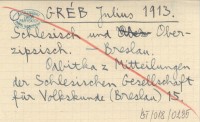 GRÉB Julius 1913.
Schlesisch und Ober-
zipsisch. Breslau.
Odbitka z Mitteilungen
der Schlesischen Gesellschaft
für Volkskunde (Breslau) 15.
BT/018/0285